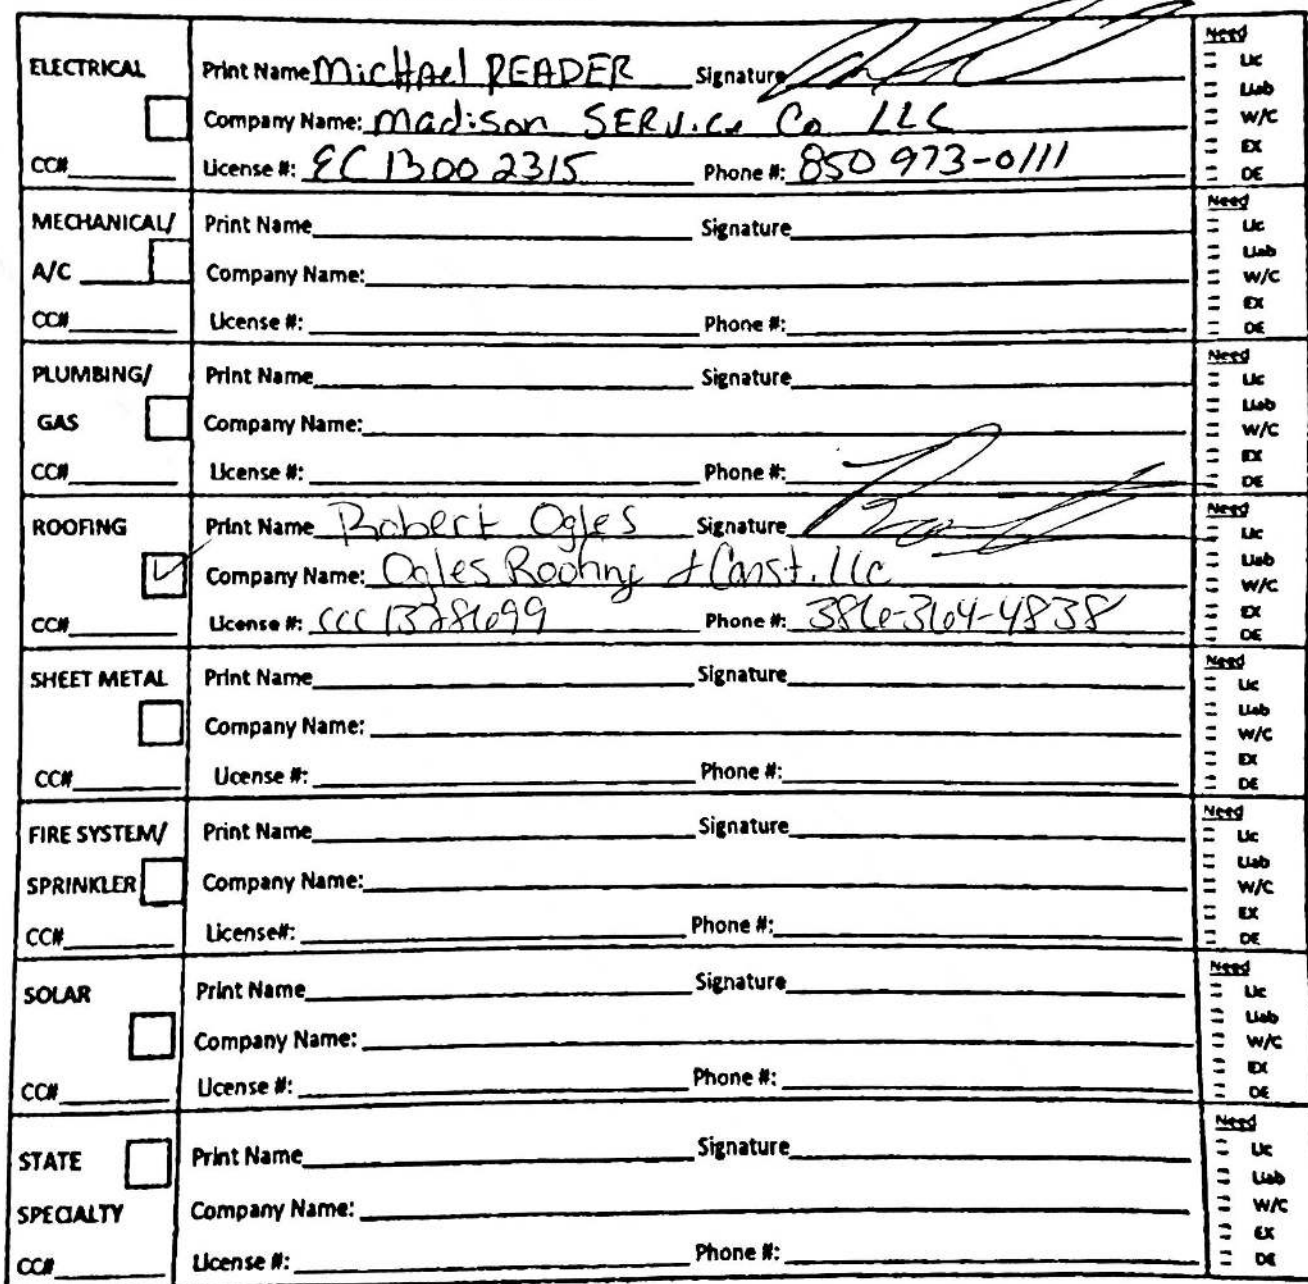 ELECTRICAL Print Name MicHAel READER Signature
Company Name: Madison SERVice Co LLC
CC# License #: EC 1300 2315 Phone #: 850 973-0111
Need
Lic
Liab
W/C
EX
DE
MECHANICAL/ Print Name Signature
A/C Company Name:
CC# License #: Phone #:
Need
Lic
Liab
W/C
EX
DE
PLUMBING/ Print Name Signature
GAS Company Name:
CC# License #: Phone #:
Need
Lic
Liab
W/C
EX
DE
ROOFING Print Name Robert Ogles Signature
Company Name: Ogles Roofing + Const. llc
CC# License #: CCC 1328699 Phone #: 386-364-4838
Need
Lic
Liab
W/C
EX
DE
SHEET METAL Print Name Signature
Company Name:
CC# License #: Phone #:
Need
Lic
Liab
W/C
EX
DE
FIRE SYSTEM/ Print Name Signature
SPRINKLER Company Name:
CC# License#: Phone #:
Need
Lic
Liab
W/C
EX
DE
SOLAR Print Name Signature
Company Name:
CC# License #: Phone #:
Need
Lic
Liab
W/C
EX
DE
STATE Print Name Signature
SPECIALTY Company Name:
CC# License #: Phone #:
Need
Lic
Liab
W/C
EX
DE